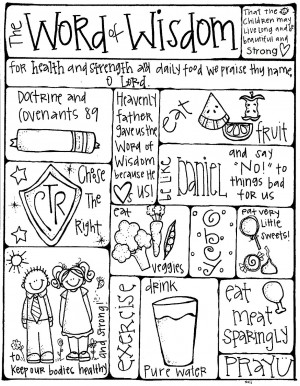 The
WORD of WISDOM
That the
Children may
Live long and be
beautiful and
Strong
for health and strength and daily food we praise thy name,
O Lord.
Doctrine and
Covenants 89
Heavenly
Father
gave us the
Word of
Wisdom
because He
us!
eat
fruit
Chose
The
Right
CTR
be like
Daniel
and say
"No!" to
things bad
for us
eat
veggies
eat very
little
sweets!
exercise
drink
Pure water
eat
meat
sparingly
PRAY
to
keep our bodies healthy
and strong!